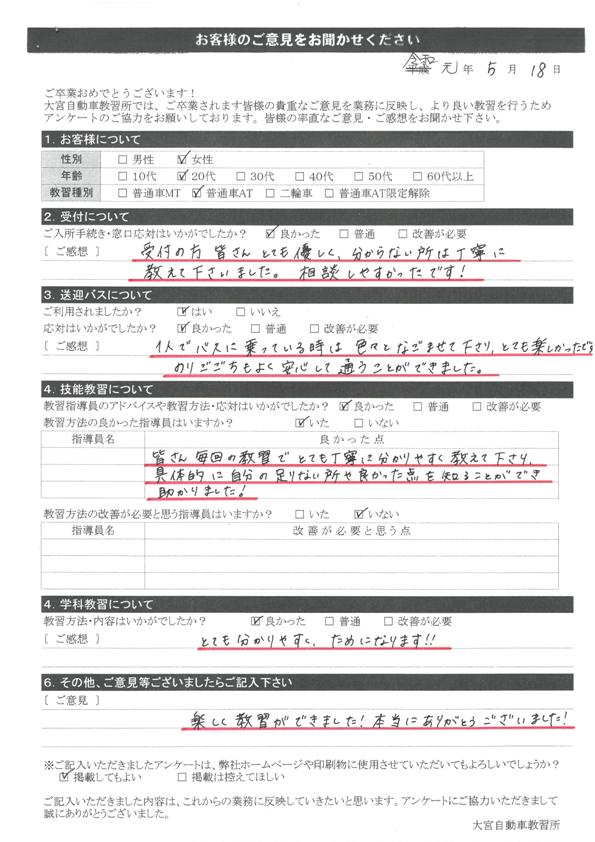 お客様のご意見をお聞かせください
令和 元 年 5 月 18 日
ご卒業おめでとうございます！
大宮自動車教習所では、ご卒業されます皆様の貴重なご意見を業務に反映し、より良い教習を行うため
アンケートのご協力をお願いしております。皆様の率直なご意見・ご感想をお聞かせ下さい。
1. お客様について
性別 □ 男性 ☑ 女性
年齢 □ 10代 ☑ 20代 □ 30代 □ 40代 □ 50代 □ 60代以上
教習種別 □ 普通車MT ☑ 普通車AT □ 二輪車 □ 普通車AT限定解除
2. 受付について
ご入所手続き・窓口応対はいかがでしたか？ ☑ 良かった □ 普通 □ 改善が必要
［ ご感想 ］ 受付の方 皆さん とても優しく、分からない所は丁寧に
教えて下さいました。 相談しやすかったです！
3. 送迎バスについて
ご利用されましたか？ ☑ はい □ いいえ
応対はいかがでしたか？ ☑ 良かった □ 普通 □ 改善が必要
［ ご感想 ］ 1人でバスに乗っている時は 色々となごませて下さり、とても楽しかったです
のりごごちもよく安心して通うことができました。
4. 技能教習について
教習指導員のアドバイスや教習方法・応対はいかがでしたか？ ☑ 良かった □ 普通 □ 改善が必要
教習方法の良かった指導員はいますか？ ☑ いた □ いない
指導員名 良かった点
皆さん毎回の教習でとても丁寧に分かりやすく教えて下さり、
具体的に自分の足りない所や良かった点を知ることができ
助かりました！
教習方法の改善が必要と思う指導員はいますか？ □ いた ☑ いない
指導員名 改善が必要と思う点
4. 学科教習について
教習方法・内容はいかがでしたか？ ☑ 良かった □ 普通 □ 改善が必要
［ ご感想 ］ とても分かりやすく、ためになります！！
6. その他、ご意見等ございましたらご記入下さい
［ ご意見 ］
楽しく教習ができました！本当にありがとうございました！
※ご記入いただきましたアンケートは、弊社ホームページや印刷物に使用させていただいてもよろしいでしょうか？
☑ 掲載してもよい □ 掲載は控えてほしい
ご記入いただきました内容は、これからの業務に反映していきたいと思います。アンケートにご協力いただきまして
誠にありがとうございました。
大宮自動車教習所